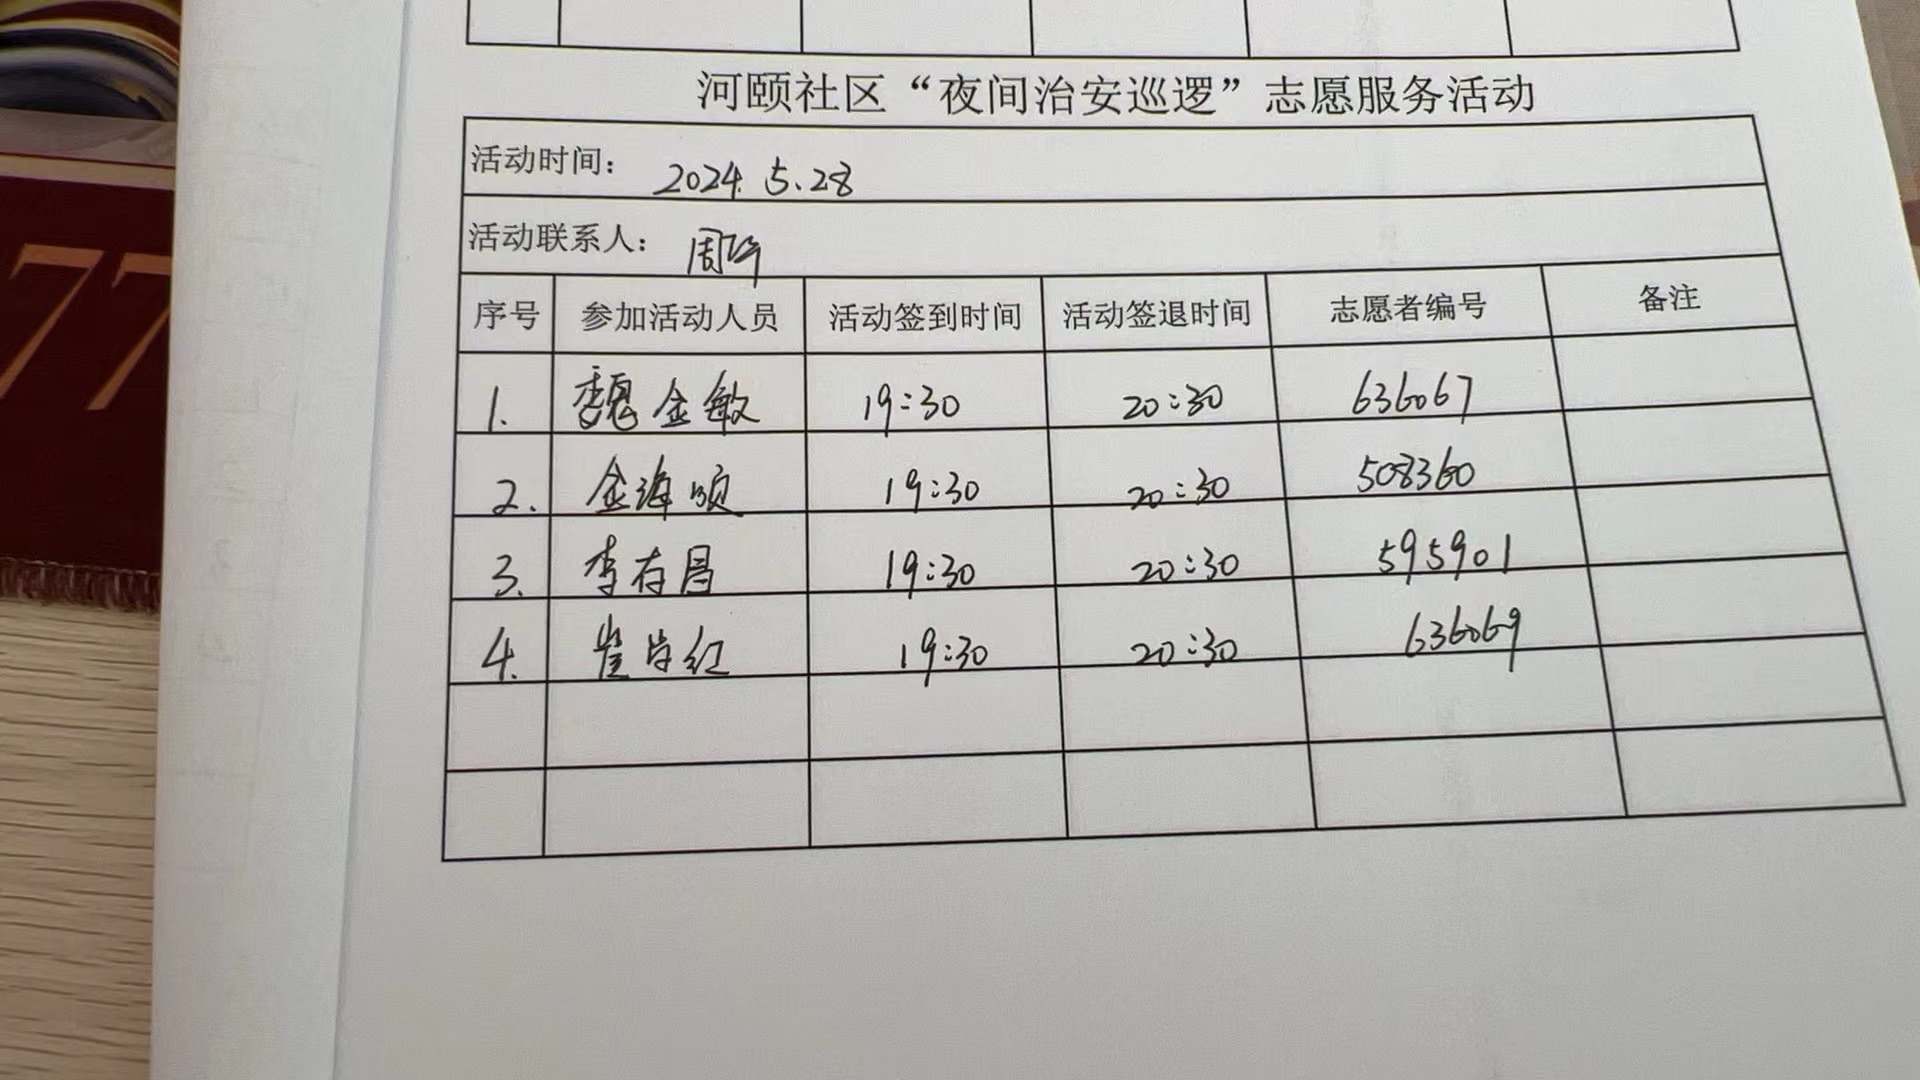 77
河颐社区“夜间治安巡逻”志愿服务活动
活动时间: 2024.5.28
活动联系人: 周
序号 参加活动人员 活动签到时间 活动签退时间 志愿者编号 备注
1. 魏金敏 19:30 20:30 636067
2. 金海顺 19:30 20:30 508360
3. 李存昌 19:30 20:30 595901
4. 崔 红 19:30 20:30 636069